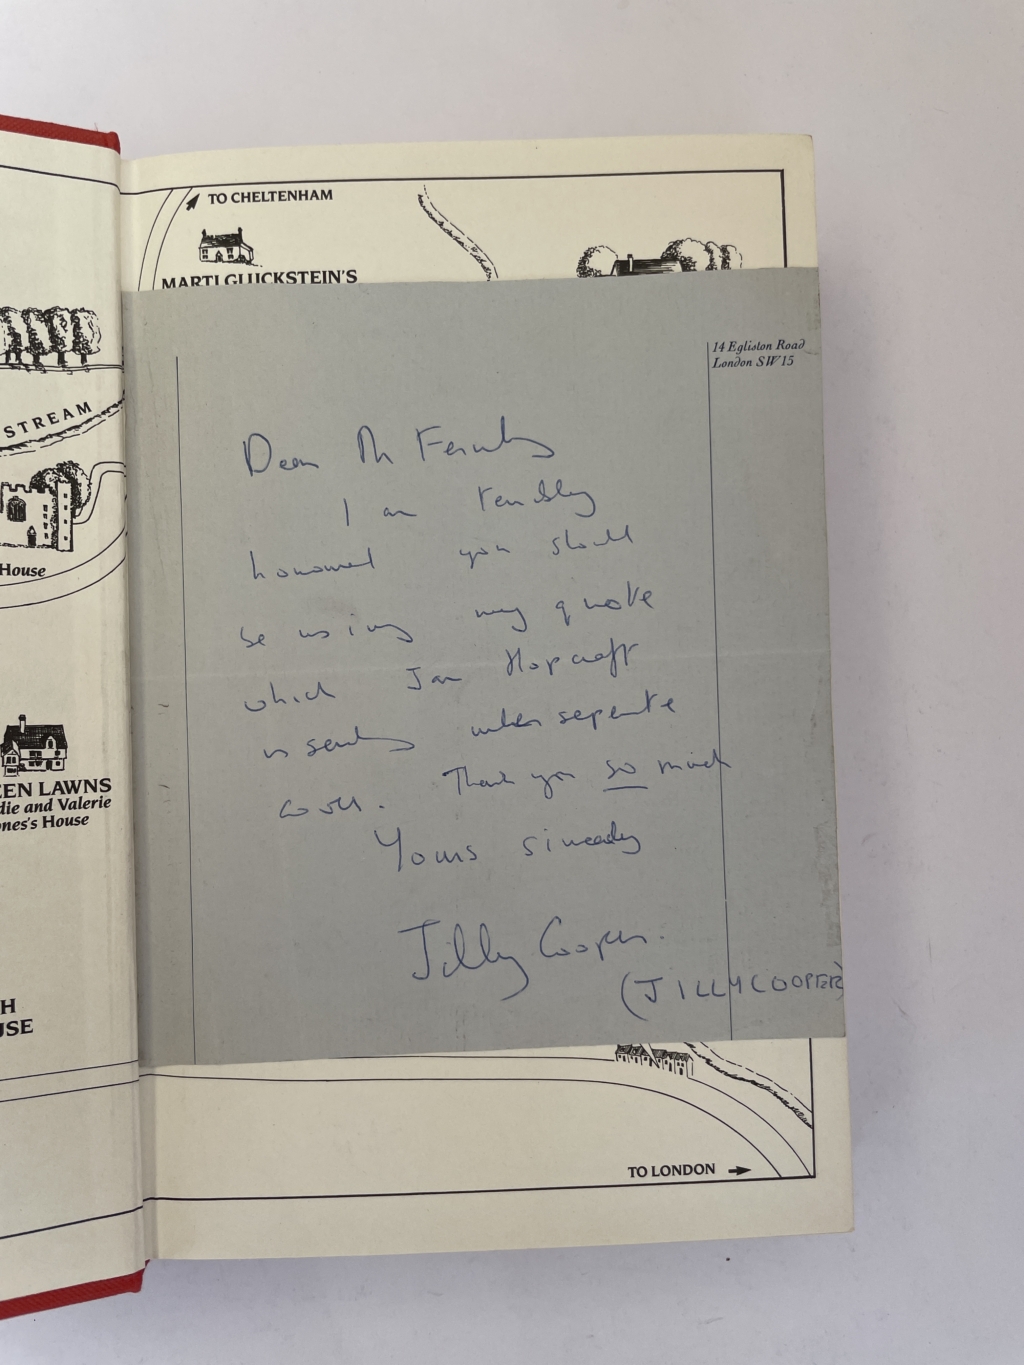 TO CHELTENHAM
MARTI GLUCKSTEIN'S
STREAM
House
EEN LAWNS
die and Valerie
ones's House
H
USE
14 Egliston Road
London SW15
Dear Mr Fernley
I am terribly
honoured you should
be using my quote
which Jan Hopcraft
is sending under separate
cover. Thank you so much
Yours sincerely
Jilly Cooper.
(JILLY COOPER)
TO LONDON